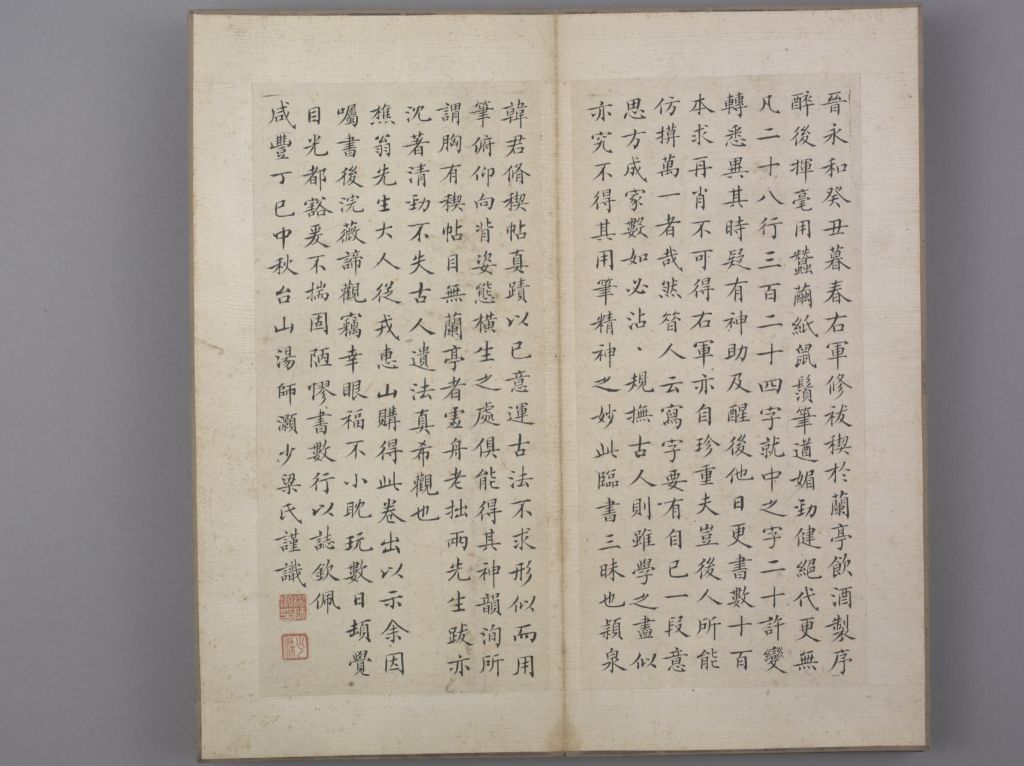 晉永和癸丑暮春右軍修祓稧於蘭亭飲酒製序
醉後揮毫用蠶繭紙鼠鬚筆遒媚勁健絕代更無
凡二十八行三百二十四字就中之字二十許變
轉悉異其時疑有神助及醒後他日更書數十百
本求再肖不可得右軍亦自珍重夫豈後人所能
仿撵萬一者哉然昝人云寫字要有自己一段意
思方成家數如必沾、規撫古人則雖學之盡似
亦究不得其用筆精神之妙此臨書三昧也穎泉
韓君脩稧帖真蹟以己意運古法不求形似而用
筆俯仰向背姿態橫生之處俱能得其神韻洵所
謂胸有稧帖目無蘭亭者虛舟老拙兩先生跋亦
沈著清勁不失古人遺法真希觀也
樵翁先生大人從戎惠山購得此卷出以示余因
囑書後浣薇諦觀竊幸眼福不小耽玩數日頓覺
目光都豁爰不揣固陋憀書數行以誌欽佩
咸豐丁巳中秋台山湯師灝少梁氏謹識